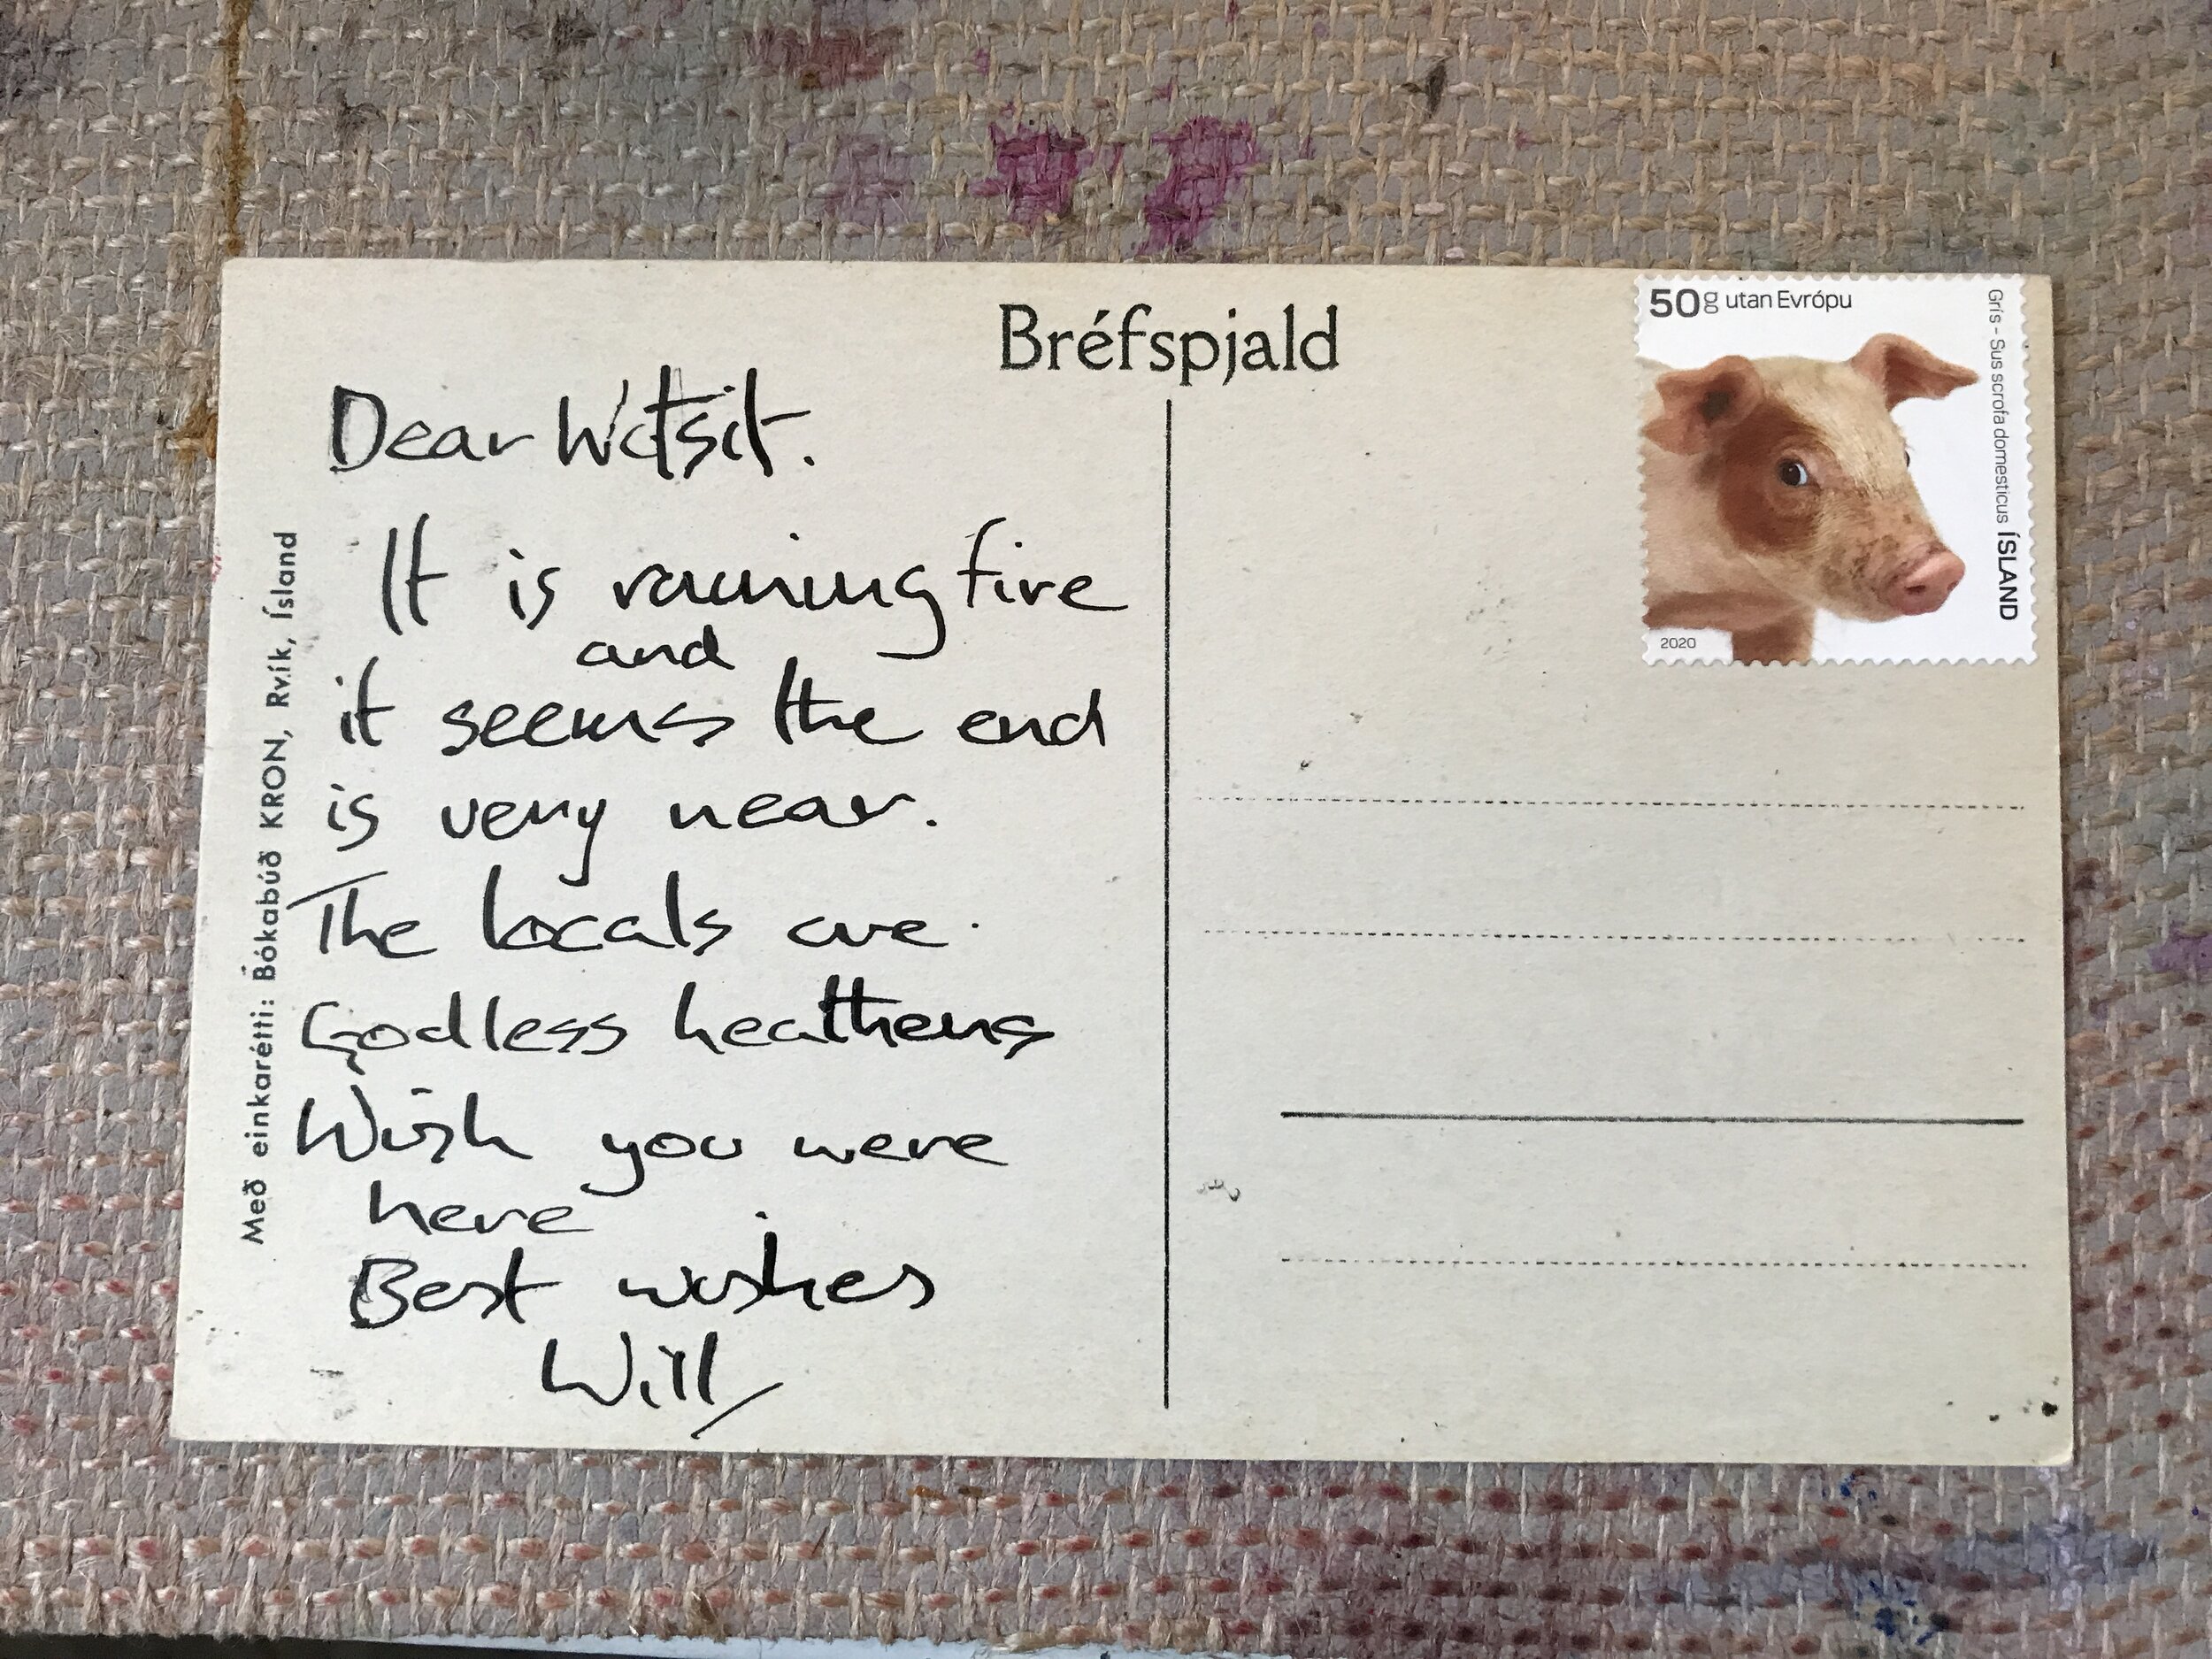 Bréfspjald
50g utan Evrópu
Grís - Sus scrofa domesticus ÍSLAND
2020
Með einkarétti: Bókabúð KRON, Rvík, Ísland
Dear Wotsit.
It is raining fire
and
it seems the end
is very near.
The locals are.
Godless heathens
Wish you were
here
Best wishes
Will